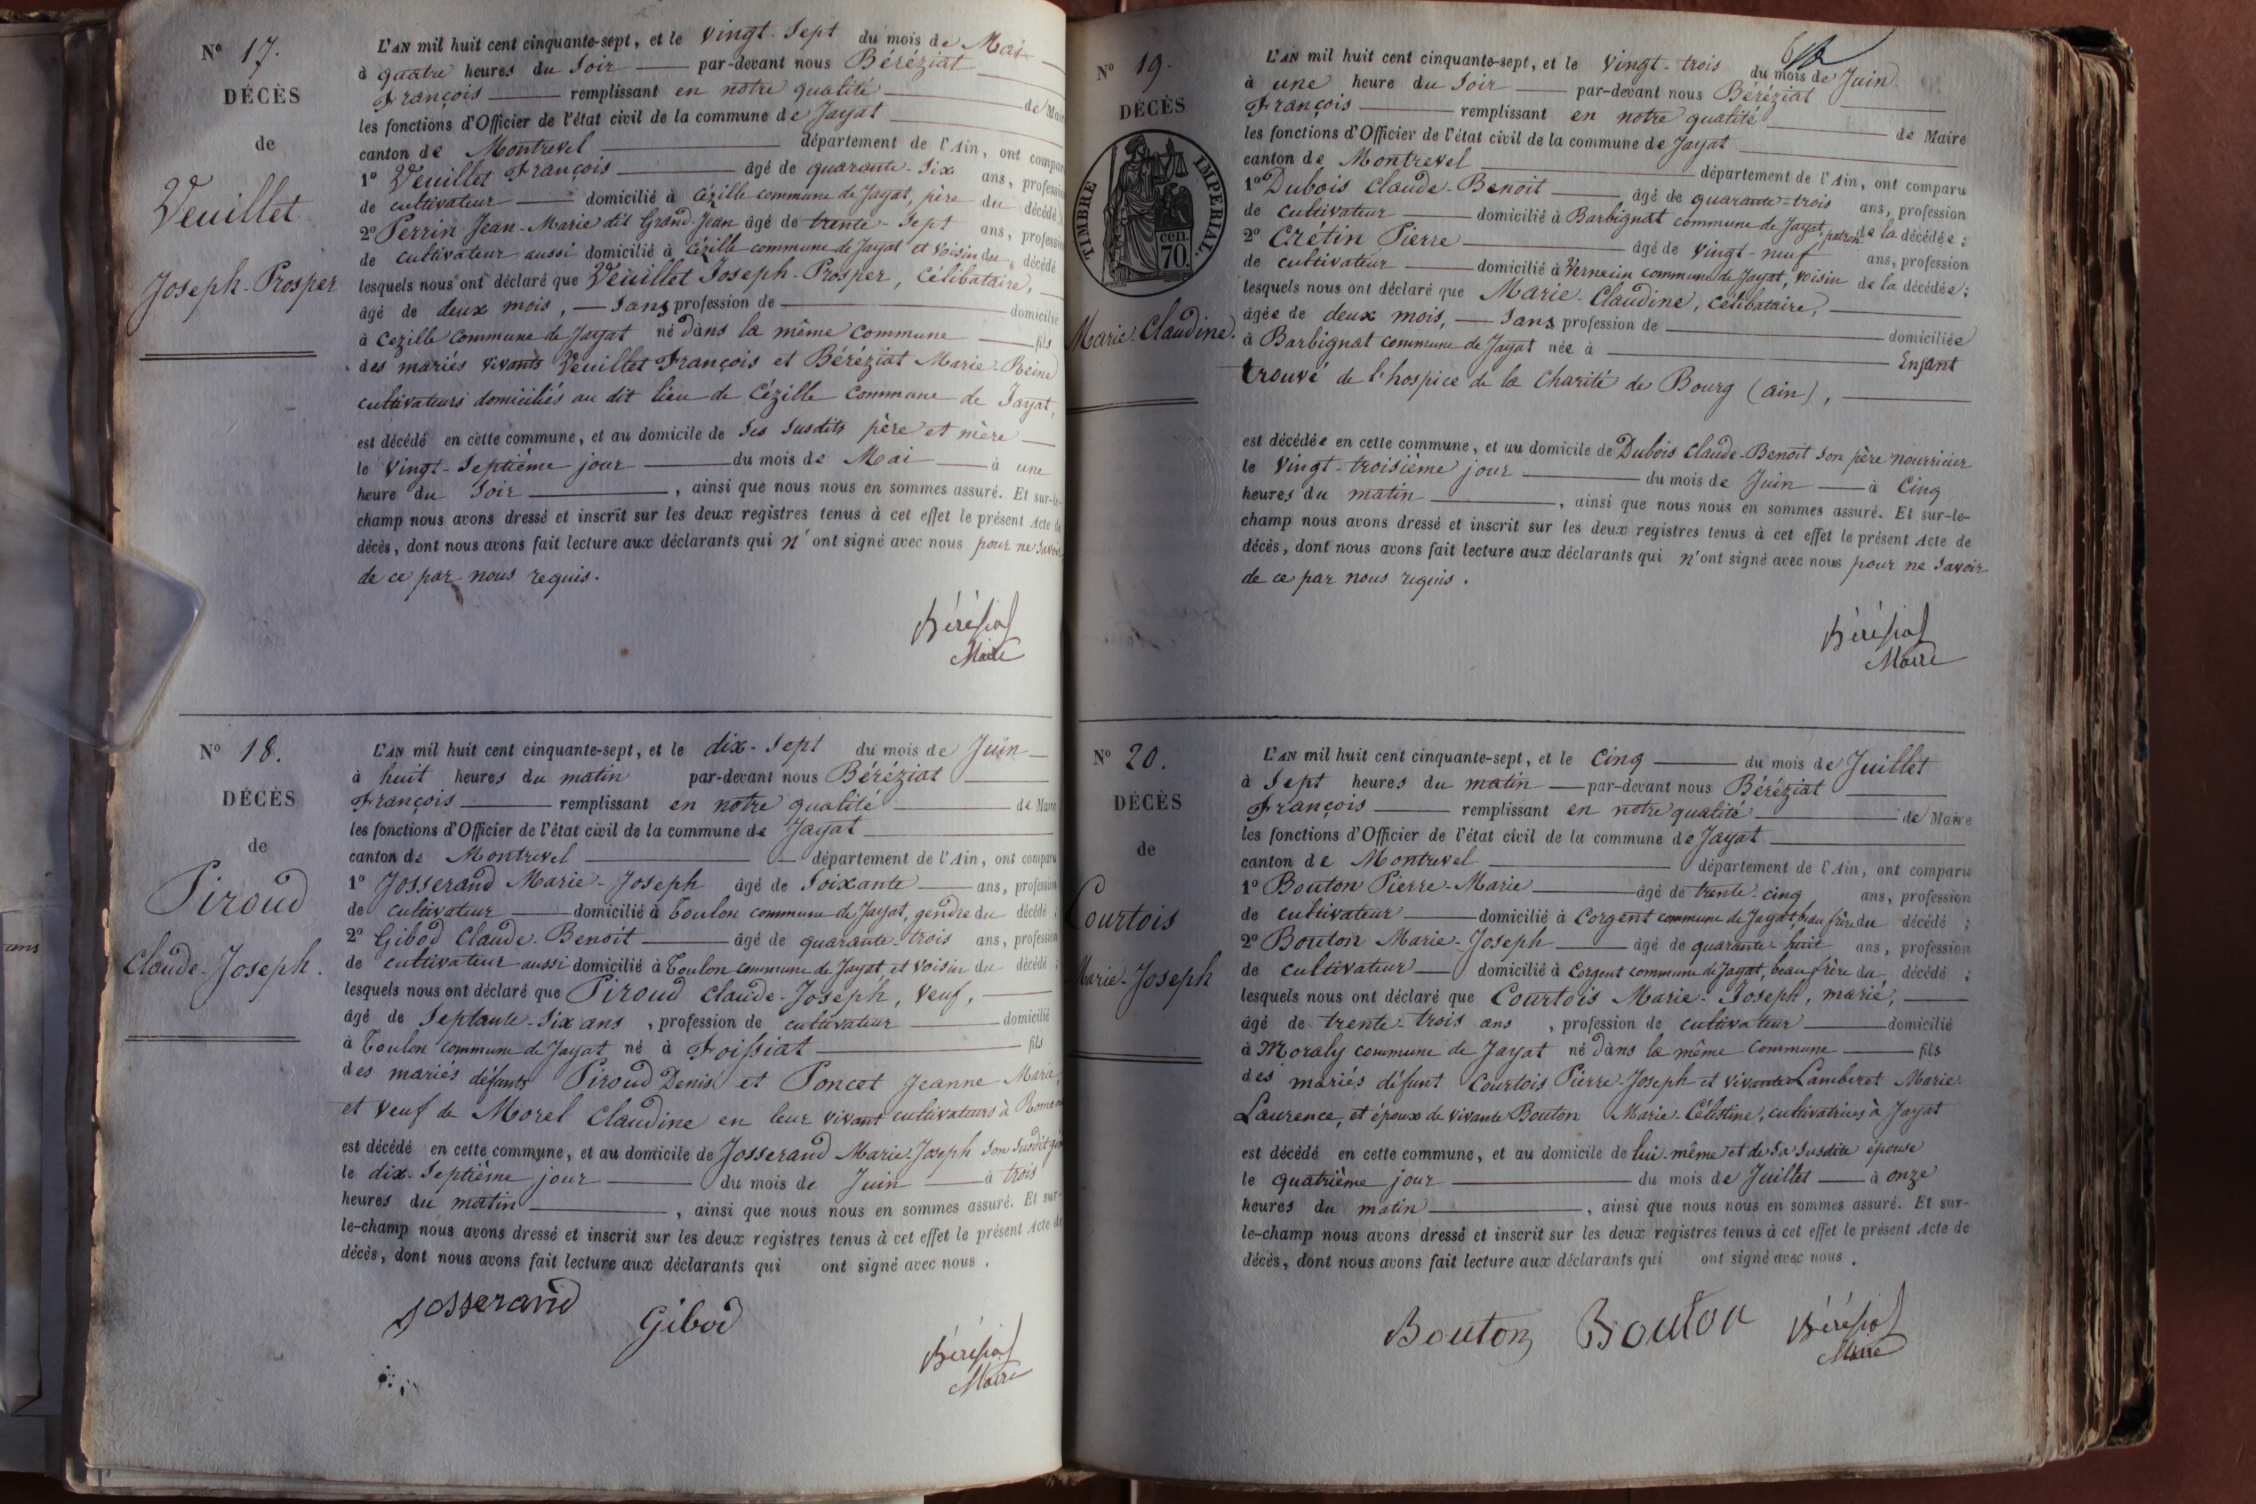 N° 17.
DÉCÈS
de
Veuillet
Joseph-Prosper
L'AN mil huit cent cinquante-sept, et le vingt-sept du mois de Mai
à quatre heures du soir par-devant nous Béréziat
François remplissant en notre qualité de Maire
les fonctions d'Officier de l'état civil de la commune de Jayat
canton de Montrevel département de l'Ain, ont comparu
1° Veuillet François âgé de quarante-six ans, profession
de cultivateur domicilié à Cézille commune de Jayat, père du décédé
2° Perrin Jean-Marie dit Grand-Jean âgé de trente-sept ans, profession
de cultivateur aussi domicilié à Cézille commune de Jayat et voisin du décédé
lesquels nous ont déclaré que Veuillet Joseph-Prosper, célibataire,
âgé de deux mois, sans profession de domicilié
à Cezille commune de Jayat né dans la même commune fils
des mariés vivants Veuillet François et Béréziat Marie-Reine
cultivateurs domiciliés au dit lieu de Cézille commune de Jayat,
est décédé en cette commune, et au domicile de ses susdits père et mère
le vingt-septième jour du mois de Mai à une
heure du soir, ainsi que nous nous en sommes assuré. Et sur-le-
champ nous avons dressé et inscrit sur les deux registres tenus à cet effet le présent Acte de
décès, dont nous avons fait lecture aux déclarants qui n'ont signé avec nous pour ne savoir
de ce par nous requis.
Béréziat
Maire
N° 18.
DÉCÈS
de
Piroud
Claude-Joseph.
L'AN mil huit cent cinquante-sept, et le dix-sept du mois de Juin
à huit heures du matin par-devant nous Béréziat
François remplissant en notre qualité de Maire
les fonctions d'Officier de l'état civil de la commune de Jayat
canton de Montrevel département de l'Ain, ont comparu
1° Josserand Marie-Joseph âgé de soixante ans, profession
de cultivateur domicilié à Toulon commune de Jayat, gendre du décédé;
2° Gibod Claude-Benoit âgé de quarante-trois ans, profession
de cultivateur aussi domicilié à Toulon commune de Jayat et voisin du décédé;
lesquels nous ont déclaré que Piroud Claude-Joseph, veuf,
âgé de septante-six ans, profession de cultivateur domicilié
à Toulon commune de Jayat né à Foissiat fils
des mariés défunts Piroud Denis et Poncet Jeanne Marie,
et veuf de Morel Claudine en leur vivant cultivateurs à
est décédé en cette commune, et au domicile de Josserand Marie-Joseph son susdit
le dix-septième jour du mois de Juin à trois
heures du matin, ainsi que nous nous en sommes assuré. Et sur-
le-champ nous avons dressé et inscrit sur les deux registres tenus à cet effet le présent Acte de
décès, dont nous avons fait lecture aux déclarants qui ont signé avec nous.
Josserand
Gibod
Béréziat
Maire
N° 19.
DÉCÈS
TIMBRE IMPERIAL.
cen.
70.
Marie-Claudine.
L'AN mil huit cent cinquante-sept, et le vingt-trois du mois de Juin
à une heure du soir par-devant nous Béréziat
François remplissant en notre qualité de Maire
les fonctions d'Officier de l'état civil de la commune de Jayat
canton de Montrevel département de l'Ain, ont comparu
1° Dubois Claude-Benoit âgé de quarante-trois ans, profession
de cultivateur domicilié à Barbignat commune de Jayat, patron de la décédée;
2° Crétin Pierre âgé de vingt-neuf ans, profession
de cultivateur domicilié à commune de Jayat, voisin de la décédée;
lesquels nous ont déclaré que Marie-Claudine, célibataire,
âgée de deux mois, sans profession de domiciliée
à Barbignat commune de Jayat née à Enfant
trouvé de l'hospice de la charité de Bourg (ain),
est décédée en cette commune, et au domicile de Dubois Claude-Benoit son père nourricier
le vingt-troisième jour du mois de Juin à cinq
heures du matin, ainsi que nous nous en sommes assuré. Et sur-le-
champ nous avons dressé et inscrit sur les deux registres tenus à cet effet le présent Acte de
décès, dont nous avons fait lecture aux déclarants qui n'ont signé avec nous pour ne savoir
de ce par nous requis.
Béréziat
Maire
N° 20.
DÉCÈS
de
Courtois
Marie-Joseph
L'AN mil huit cent cinquante-sept, et le cinq du mois de Juillet
à sept heures du matin par-devant nous Béréziat
François remplissant en notre qualité de Maire
les fonctions d'Officier de l'état civil de la commune de Jayat
canton de Montrevel département de l'Ain, ont comparu
1° Bouton Pierre-Marie âgé de trente-cinq ans, profession
de cultivateur domicilié à Corgent commune de Jayat, beau frère du décédé;
2° Bouton Marie-Joseph âgé de quarante-huit ans, profession
de cultivateur domicilié à Corgent commune de Jayat, beau frère du décédé;
lesquels nous ont déclaré que Courtois Marie-Joseph, marié,
âgé de trente-trois ans, profession de cultivateur domicilié
à Moraly commune de Jayat né dans la même commune fils
des mariés défunt Courtois Pierre-Joseph et vivante Lamberet Marie-
Laurence, et époux de vivante Bouton Marie-Célestine, cultivatrices à Jayat
est décédé en cette commune, et au domicile de lui-même et de sa susdite épouse
le quatrième jour du mois de Juillet à onze
heures du matin, ainsi que nous nous en sommes assuré. Et sur-
le-champ nous avons dressé et inscrit sur les deux registres tenus à cet effet le présent Acte de
décès, dont nous avons fait lecture aux déclarants qui ont signé avec nous.
Bouton Bouton Béréziat
Maire